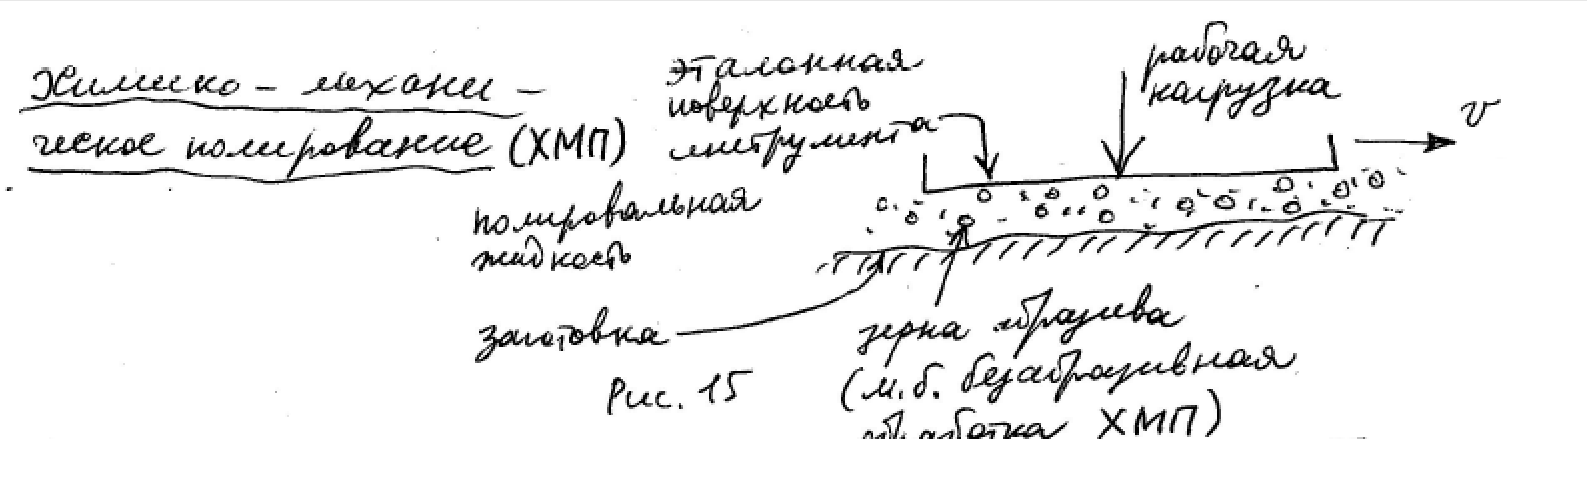 Химико-механи-
ческое полирование (ХМП)
эталонная
поверхность
инструмента
рабочая
нагрузка
v
полировальная
жидкость
заготовка
зерна абразива
(м.б. безабразивная
обработка ХМП)
Рис. 15